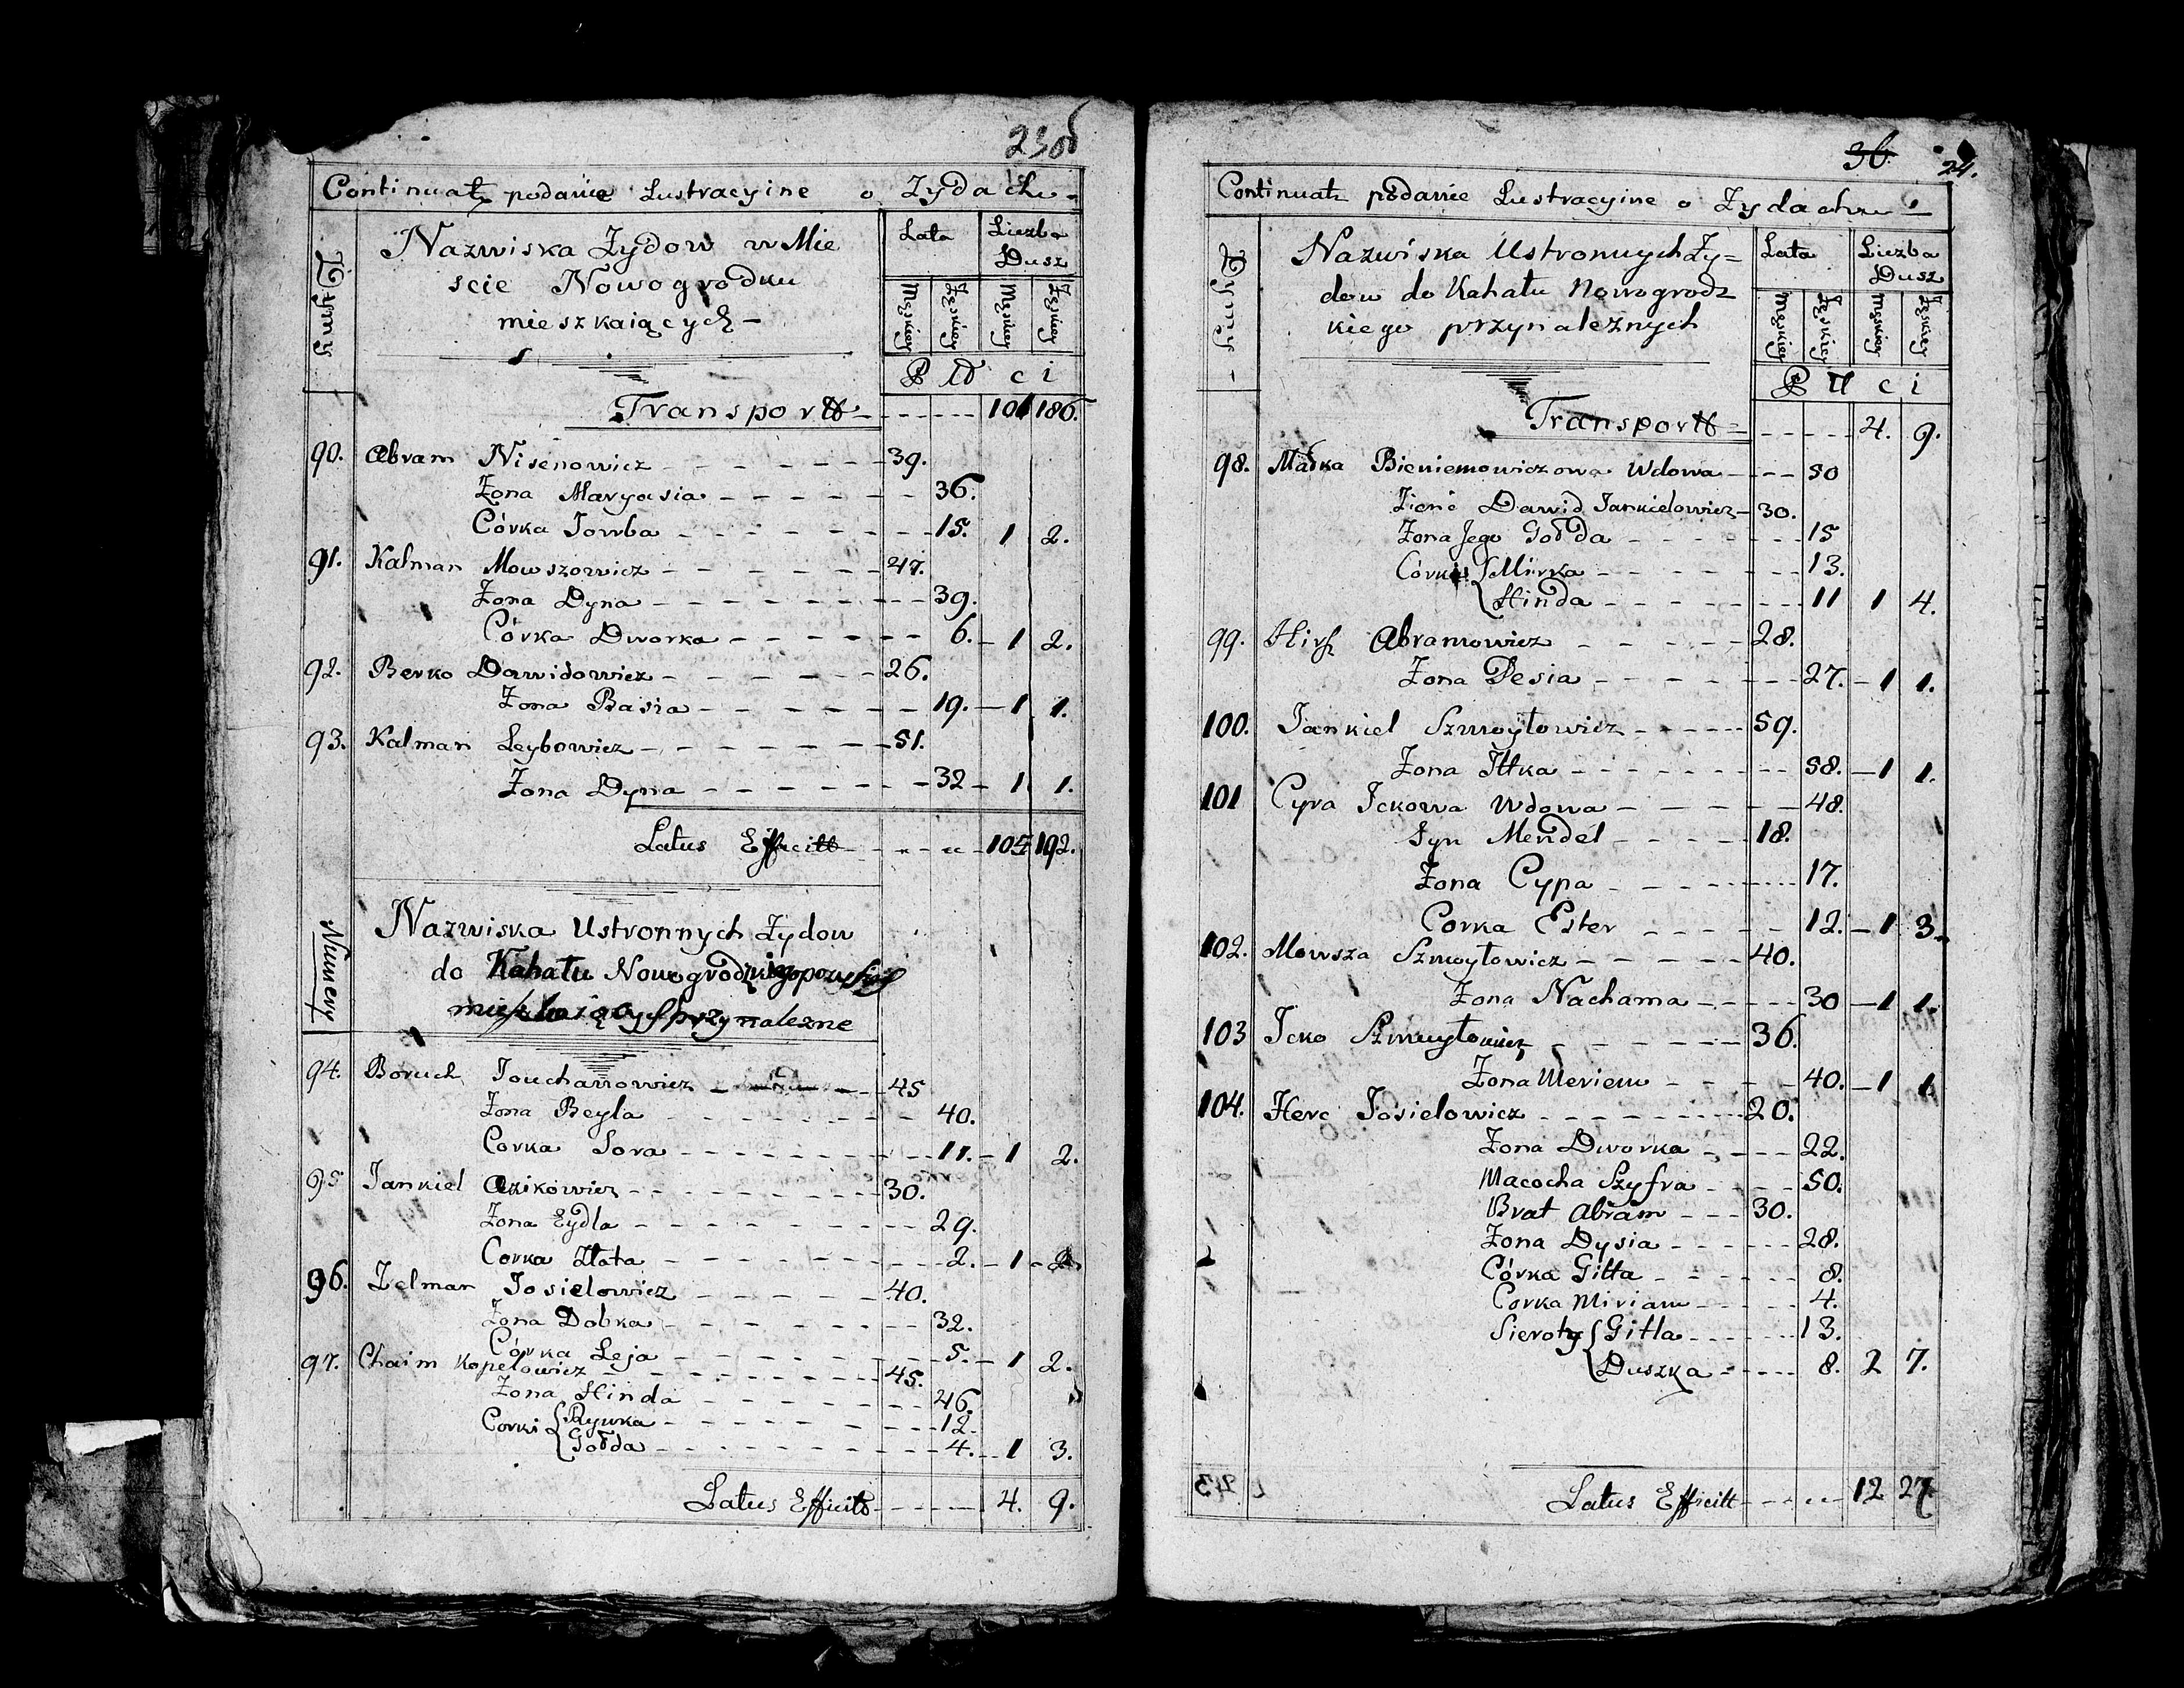 23об
Continuatz podanie Lustracyine o Żydach
Numery
Nazwiska Żydow w Mie
scie Nowogrodku
mieszkaiących
Lata Liczba Dusz
Męskiey Żęskiey Męskiey Żęskiey
P ł c i
Transportt 101 186.
90. Abram Nisenowicz 39.
Żona Maryasia 36.
Córka Jowba 15. 1 2.
91. Kalman Mowszowicz 47.
Żona Dyna 39.
Córka Dworka 6. 1 2.
92. Berko Dawidowicz 26.
Żona Basia 19. 1 1.
93. Kalman Leybowicz 51.
Żona Dyna 32 1 1.
Latus Efficitt 105 192.
Numery
Nazwiska Ustronnych Żydow
do Kahału Nowogrodzkiego
przynalezne
94. Boruch Jouchanowicz 45
Żona Beyla 40.
Corka Sora 11. 1 2.
95 Jankiel Azikowicz 30.
Żona Eydla 29.
Corka Złata 2. 1 2.
96. Zelman Josielowicz 40.
Żona Dobka 32.
Córka Leja 5. 1 2.
97. Chaim Kopelowicz 45.
Żona Hinda 46.
Corki Rywka 12.
Gołda 4. 1 3.
Latus Efficitt 4. 9.
36. 24.
Continuatz podanie Lustracyine o Żydach
Numery
Nazwiska Ustronnych Ży=
dow do Kahału Nowogrodz
kiego przynaleznych
Lata Liczba Dusz
Męskiey Żęskiey Męskiey Żęskiey
P ł c i
Transportt 4. 9.
98. Maśka Bieniemowiczowa Wdowa 50
Zienć Dawid Jankielowicz 30.
Żona Jego Gołda 15
Córki Mirka 13.
Hinda 11 1 4.
99. Hirsz Abramowicz 28.
Żona Pesia 27. 1 1.
100. Jankiel Szmoyłowicz 59.
Żona Itka 58. 1 1.
101 Cyra Ickowa Wdowa 48.
Syn Mendel 18.
Żona Cypa 17.
Corka Ester 12. 1 3.
102. Mowsza Szmoyłowicz 40.
Żona Nachama 30 1 1.
103 Icko Szmuyłowicz 36.
Żona Meriem 40. 1 1.
104. Herc Josielowicz 20.
Żona Dworka 22.
Macocha Szyfra 50.
Brat Abram 30.
Żona Dysia 28.
Córka Gitta 8.
Corka Miriam 4.
Sieroty Gitla 13.
Duszka 8. 2 7.
Latus Efficitt 12 27.